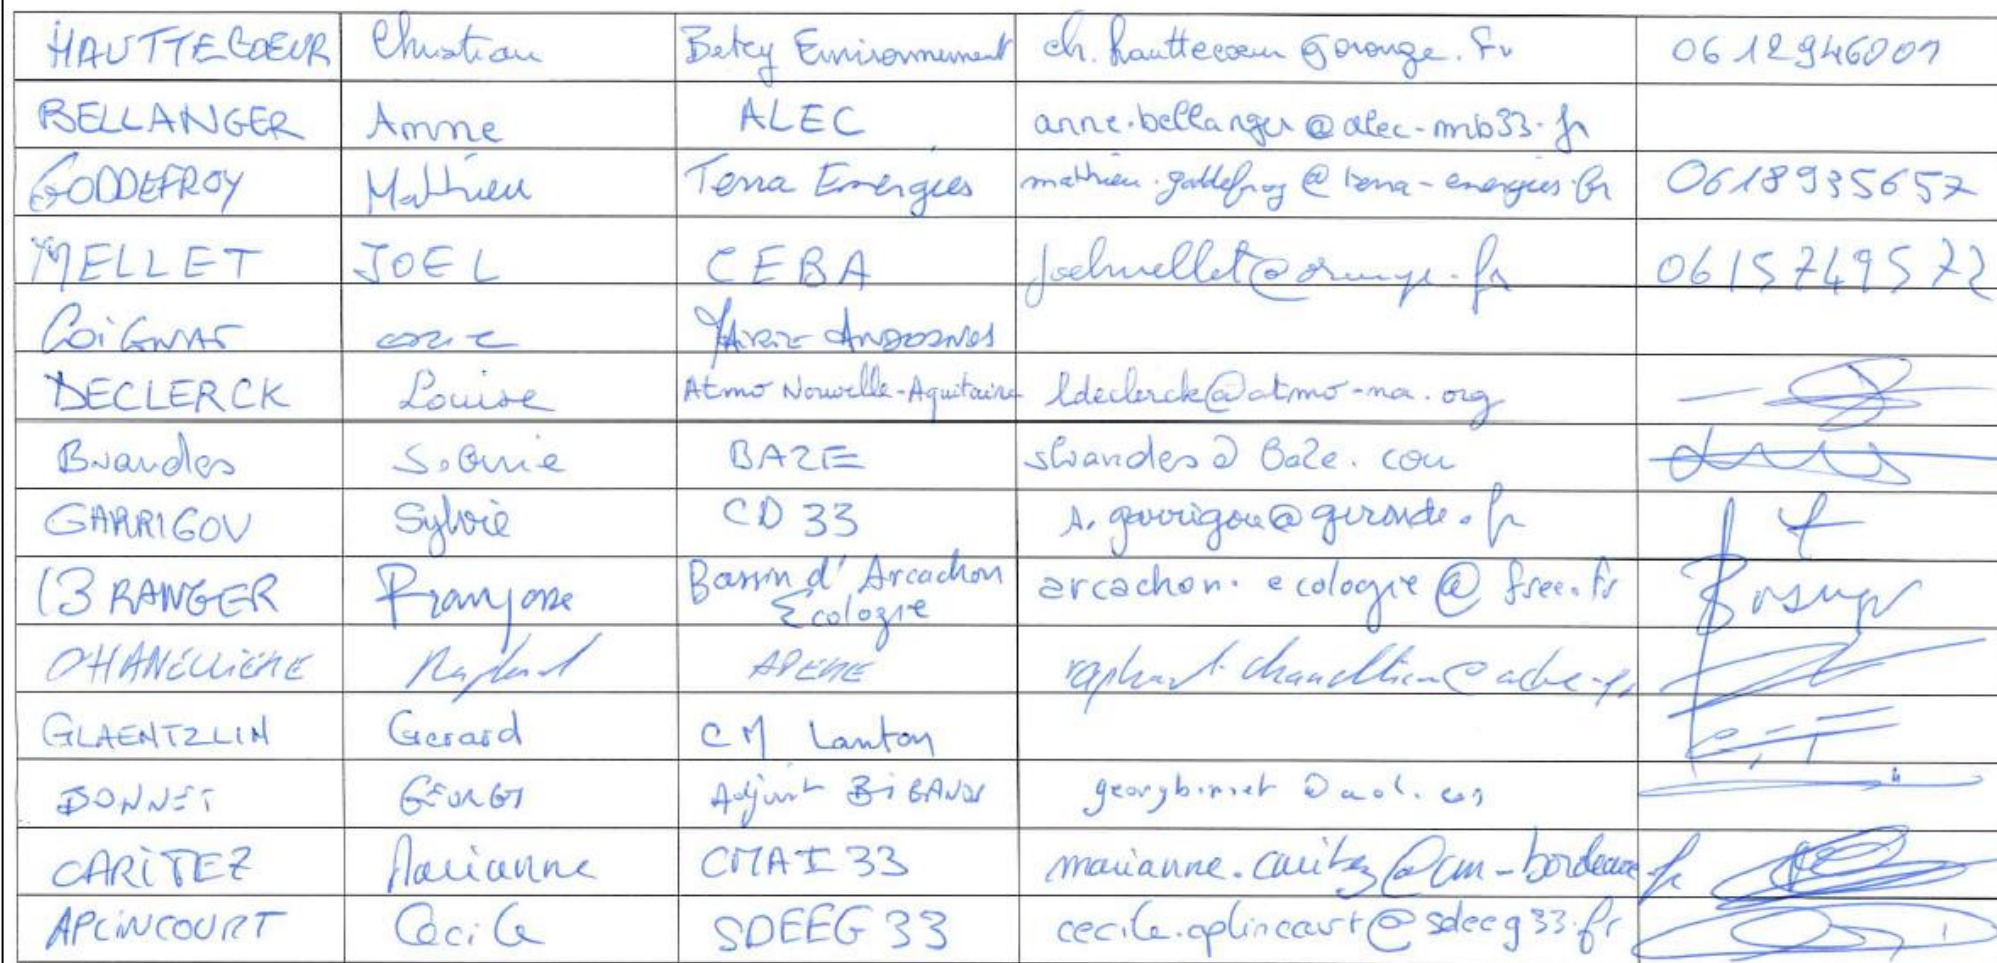 HAUTTECOEUR Christian Betcy Environnement ch.hauttecoeur@orange.fr 0612946001
BELLANGER Anne ALEC anne.bellanger@alec-mb33.fr
GODDEFROY Mathieu Terra Energies mathieu.goddefroy@terra-energies.fr 0618935657
MELLET JOEL CEBA joelmellet@orange.fr 0615749572
COIGNAT
DECLERCK Louise Atmo Nouvelle-Aquitaine ldeclerck@atmo-na.org
Brandes BAZE sbrandes@baze.com
GARRIGOU Sylvie CD 33 s.garrigou@gironde.fr
BRANGER Françoise Bassin d'Arcachon arcachon.ecologie@free.fr
Ecologie
CHANELLIERE Raphael ADEME raphael.chanelliere@ademe.fr
GLAENTZLIN Gerard CM Lanton
BONNET GEORGES Adjoint BIGANOS georgbonnet@aol.com
CARITEZ Marianne CMAI 33 marianne.caritez@cm-bordeaux.fr
APLINCOURT Cécile SDEEG 33 cecile.aplincourt@sdeeg33.fr